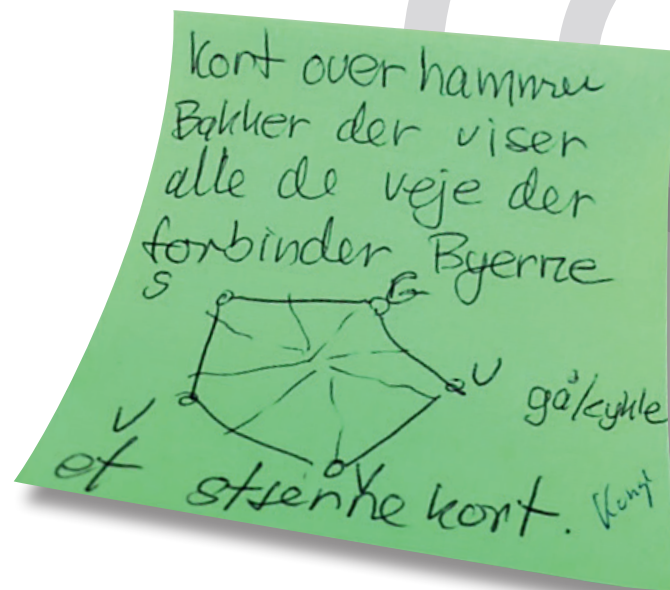 Kort over hammer
Bakker der viser
alle de veje der
forbinder Byerne
S
G
U
gå/cykle
V
V
et stienhe kort.